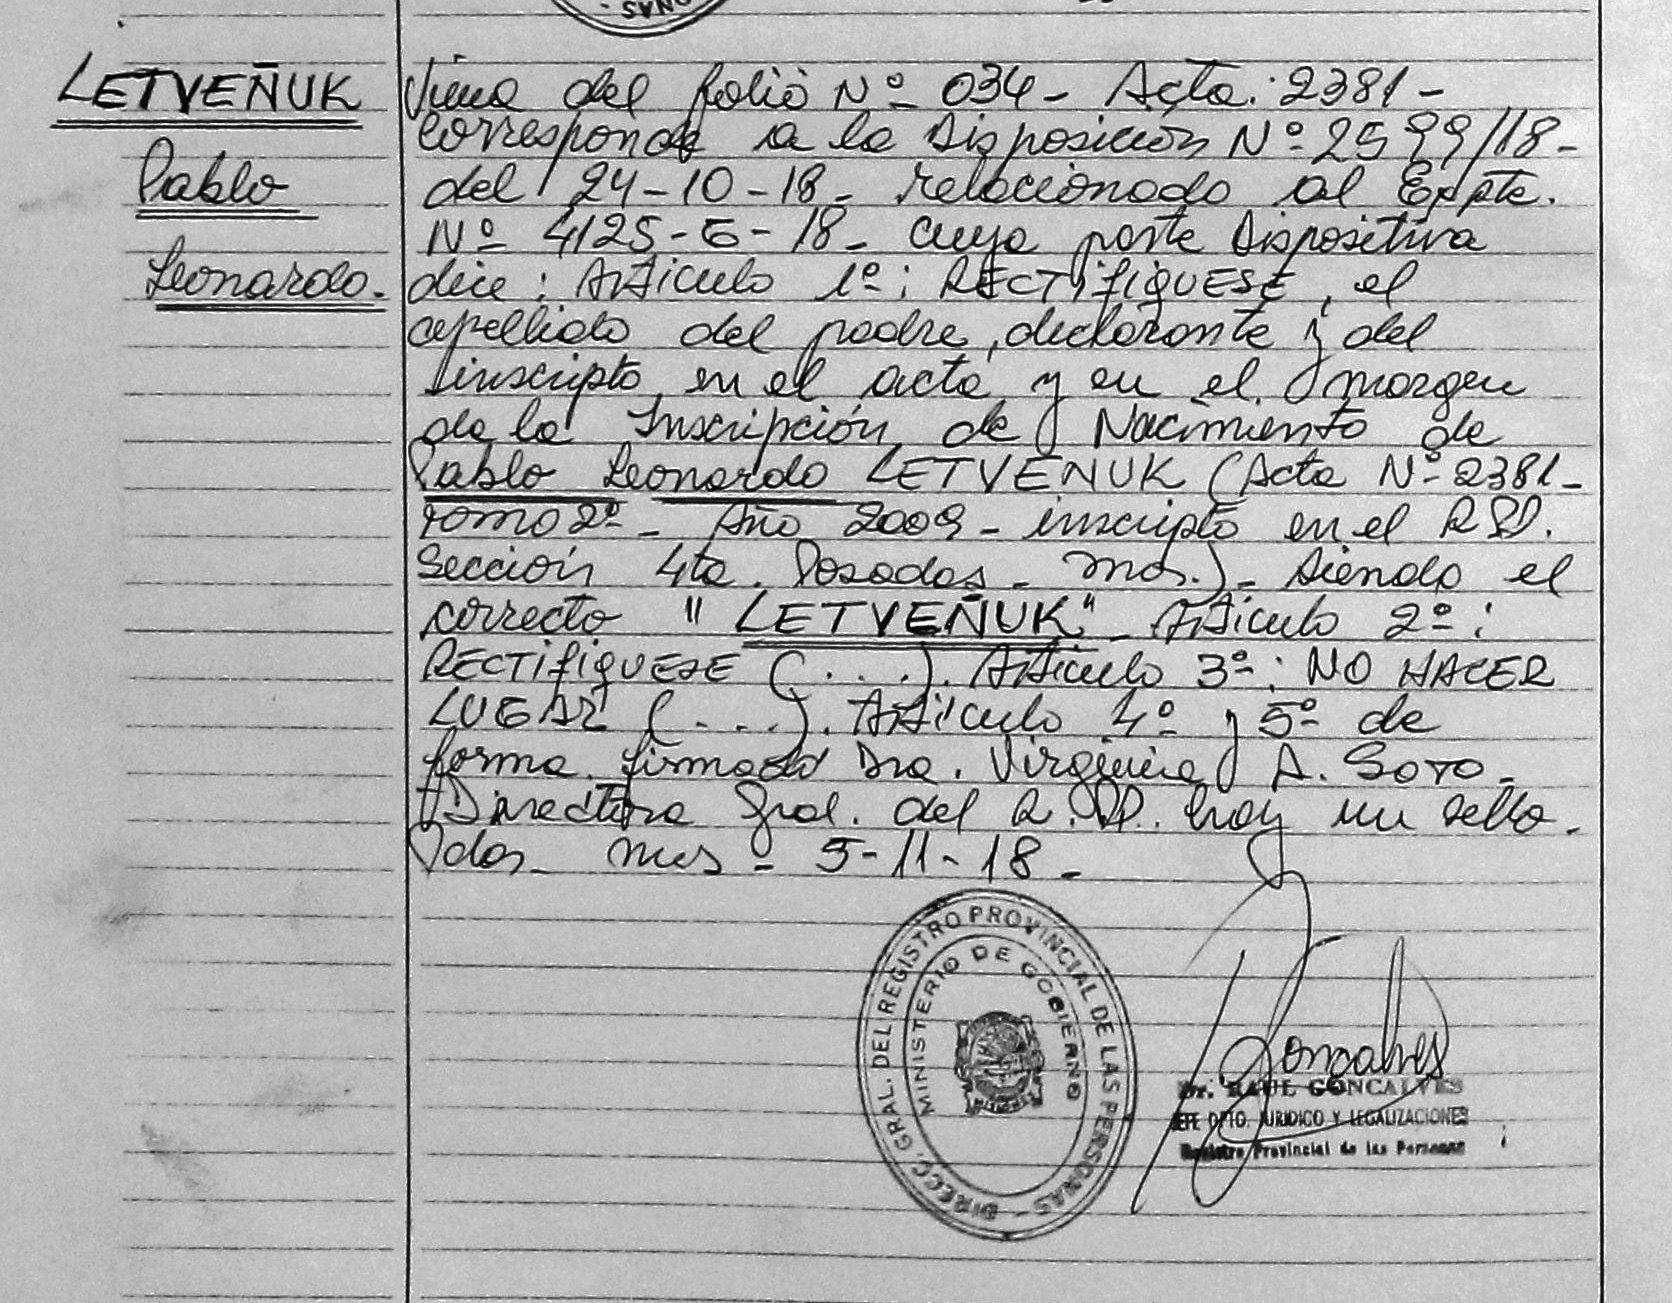 ONAS -
LETVEÑUK
Pablo
Leonardo.
Viene del folio Nº 034 - Acta: 2381 -
Corresponde a la Disposición Nº 2599/18 -
del 24-10-18 - relacionado al Expte.
Nº 4125-G-18 - cuya parte dispositiva
dice: Artículo 1º: RECTIFIQUESE, el
apellido del padre, declarante y del
inscripto en el acta y en el margen
de la Inscripción de Nacimiento de
Pablo Leonardo LETVENUK (Acta Nº 2381 -
Tomo 2º - Año 2009 - inscripto en el R.P.P.
Sección 4ta. Posadas - Mnes.) - siendo el
correcto "LETVEÑUK" - Artículo 2º:
RECTIFIQUESE (....). Artículo 3º: NO HACER
LUGAR (....). Artículo 4º y 5º de
forma. firmado Dra. Virginia A. SOTO -
Directora Gral. del R.P.P. hay un sello.
Pdas - Mnes - 5-11-18 -
DIRECC. GRAL. DEL REGISTRO PROVINCIAL DE LAS PERSONAS -
MINISTERIO DE GOBIERNO
Goncalves
Dr. RAUL GONCALVES
JEFE DPTO. JURIDICO Y LEGALIZACIONES
Registro Provincial de las Personas